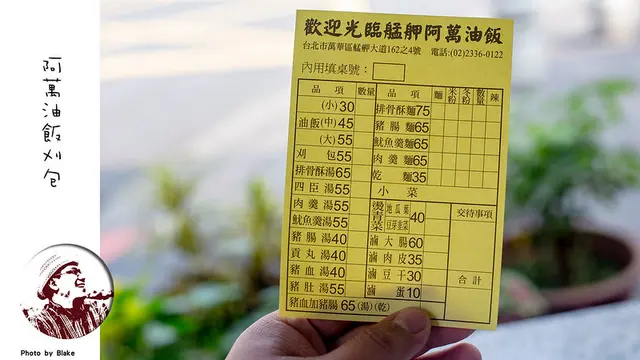 阿萬油飯刈包
Photo by Blake
歡迎光臨艋舺阿萬油飯
台北市萬華區艋舺大道162之4號 電話:(02)2336-0122
內用填桌號:
品 項 數量
(小)30
油飯(中)45
(大)55
刈 包55
排骨酥湯65
四 臣 湯55
肉 羹 湯55
魷魚羹湯55
豬 腸 湯40
貢 丸 湯40
豬 血 湯40
豬 肚 湯55
豬血加豬腸 65(湯)(乾)
品 項 麵 米粉 冬粉 數量 辣
排骨酥麵75
豬 腸 麵65
魷魚羹麵65
肉 羹 麵65
乾 麵35
小 菜
燙青菜 地瓜葉 豆芽韭菜 40
滷 大 腸60
滷 肉 皮35
滷 豆 干30
滷 蛋10
交待事項
合計